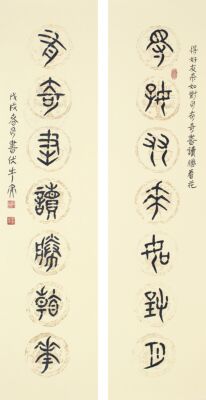 得好友來如對月有奇書讀勝看花
得好友來如對月
有奇書讀勝看花
戊戌春月書伏牛